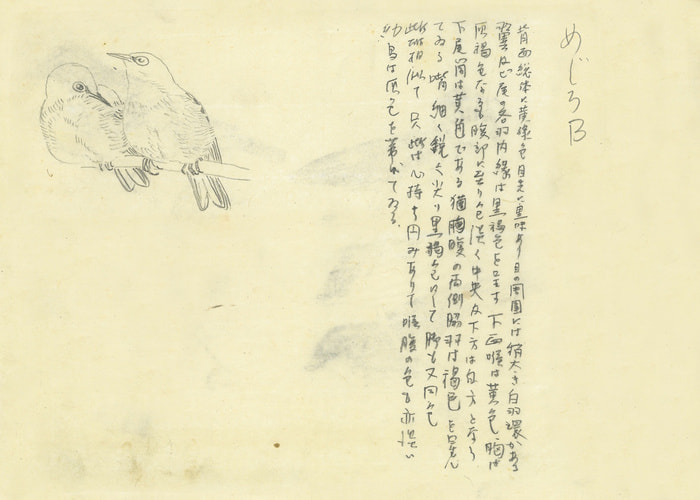 めじろB
背面総体に黄緑色目先に黒味あり目の周囲には稍大きき白羽環がある
翼及び尾の各羽内縁は黒褐色を呈す下面喉は黄色、胸は
灰褐色なるも腹部に至り色淡く中央及下方は白方となる
下尾筒は黄色である 猶胸腹の両側脇羽は褐色を呈し
てゐる 嘴細く鋭く尖り黒褐色にして脚も又同色
雌雄相似て只雌は心持ち円みありて喉腹の色も亦淡い
幼鳥は灰色を帯びてゐる.